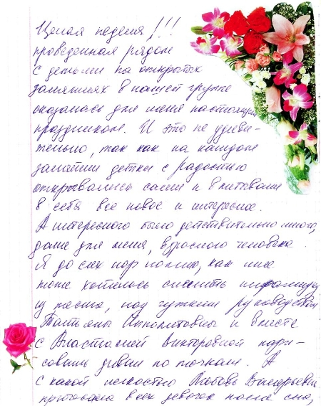 Целая неделя!!!
проведенная рядом
с детьми на открытых
занятиях в нашей группе
оказалась для меня настоящим
праздником. И это не удиви-
тельно, так как на каждом
занятии детки с радостью
открывались сами и впитывали
в себя все новое и интересное.
А интересного было действительно много,
даже для меня, взрослого человека.
Я до сих пор помню, как мне
тоже хотелось слепить пирамидку
из теста, под чутким руководством
Татьяны Ипполитовны и вместе
с Анастасией Викторовной пори-
совать
с какой легкостью Любовь
всех девочек после сна,